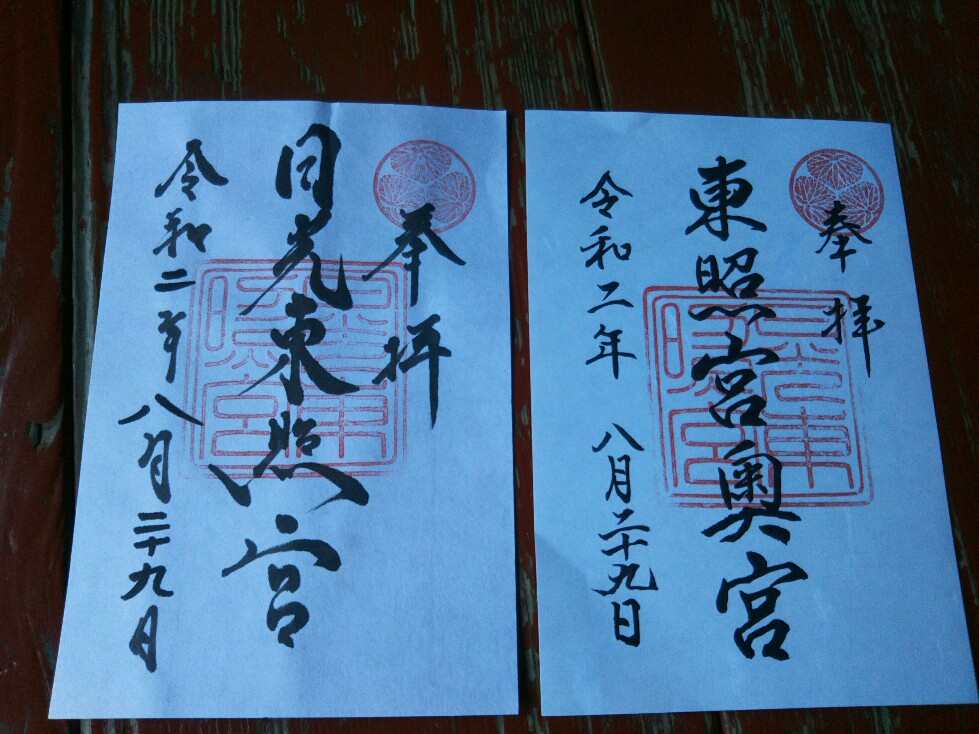 奉拝
日光東照宮
令和二年八月二十九日
奉拝
東照宮奥宮
令和二年八月二十九日